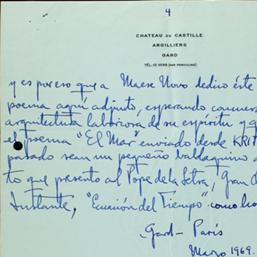 4
CHATEAU DE CASTILLE
ARGILLIERS
GARD
y es por eso que a Maese Novo dedico éste
poema aquí adjunto, esperando
arquitectura laboriosa de su espíritu y q
el poema "El Mar" enviado desde KRIT
pasado sean un pequeño baldaquino a
to que presento al Pope de la Letra, Gran d
Instante, "Ecuación del Tiempo" como
Gard - Paris
Marzo 1969.